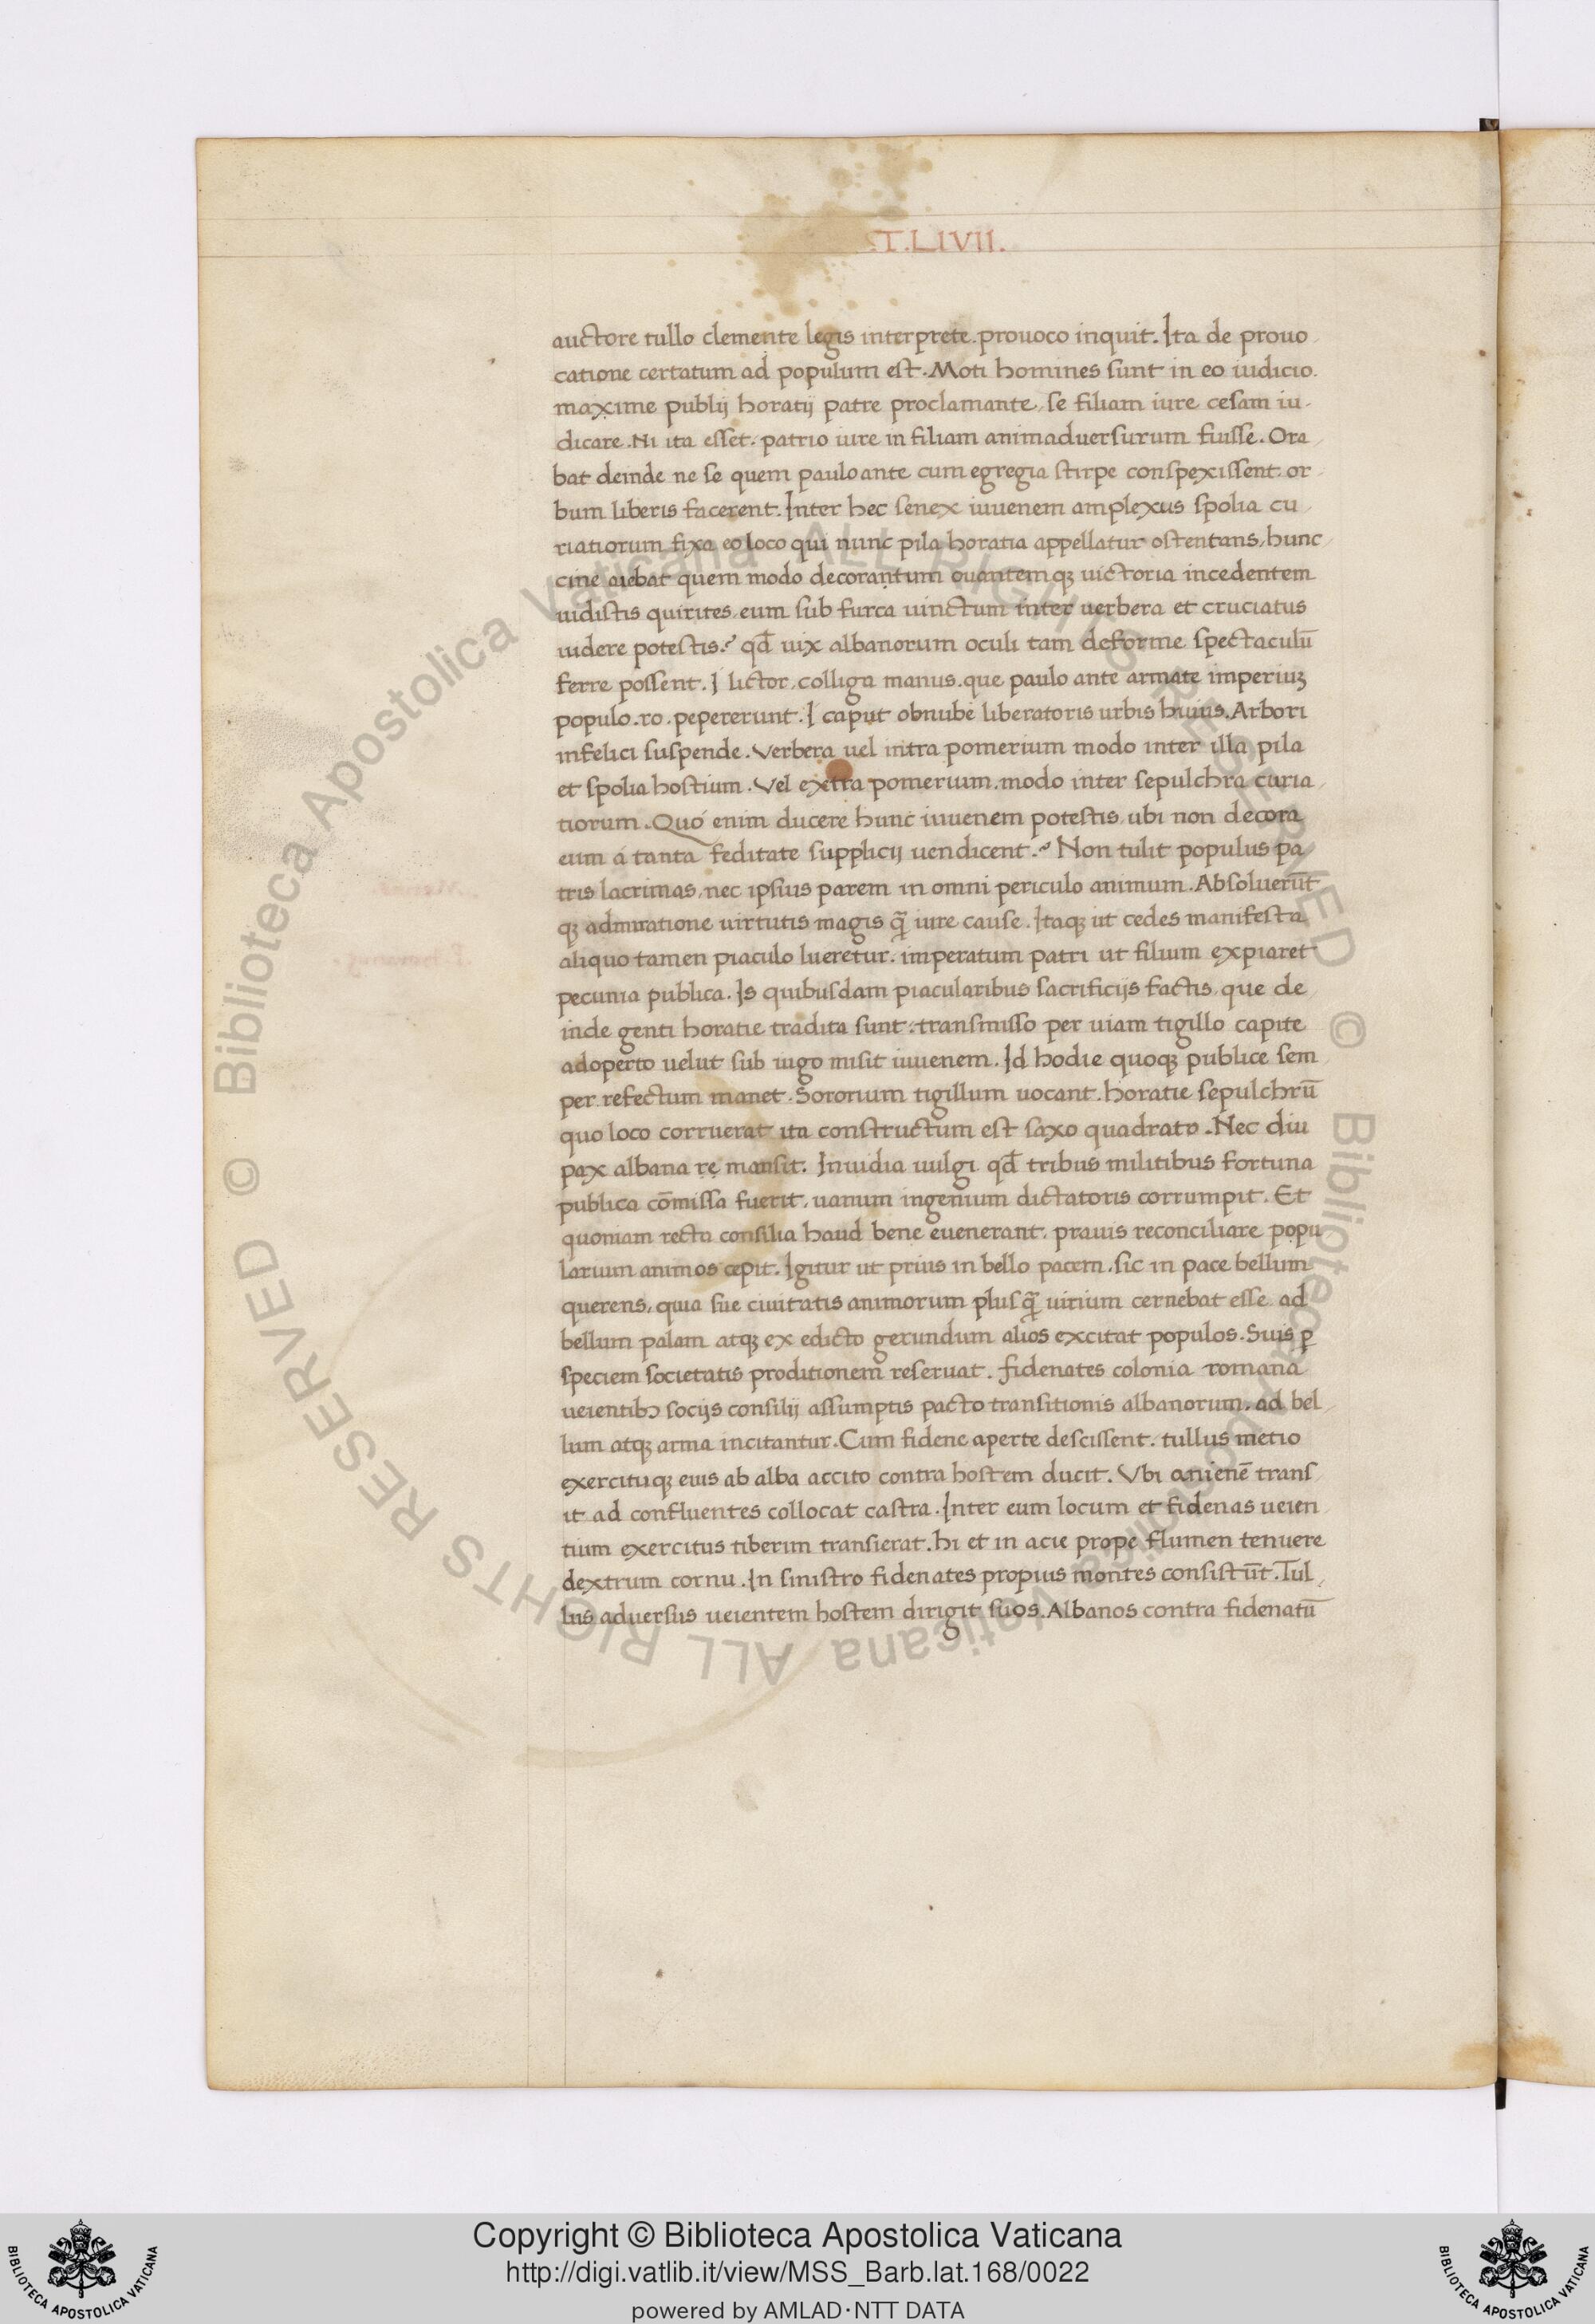 .T.LIVII.
auctore tullo clemente legis interprete. prouoco inquit. Ita de prouo
catione certatum ad populum est. Moti homines sunt in eo iudicio.
maxime publij horatij patre proclamante, se filiam iure cesam iu
dicare. Ni ita esset. patrio iure in filiam animaduersurum fuisse. Ora
bat deinde ne se quem paulo ante cum egregia stirpe conspexissent. or
bum liberis facerent. Inter hec senex iuuenem amplexus spolia cu
riatiorum fixa eo loco qui nunc pila horatia appellatur ostentans, hunc
cine aiebat quem modo decorantum ouantemqȝ uictoria incedentem
uidistis quirites, eum sub furca uinctum inter uerbera et cruciatus
uidere potestis? qđ uix albanorum oculi tam deforme spectaculū
ferre possent. I lictor, colliga manus. que paulo ante armate imperiuȝ
populo. ro. pepererunt. I caput obnube liberatoris urbis huius. Arbori
infelici suspende. Verbera uel intra pomerium modo inter illa pila
et spolia hostium. Vel extra pomerium, modo inter sepulchra curia
tiorum. Quó enim ducere hunc iuuenem potestis ubi non decora
eum á tanta feditate supplicij uendicent? Non tulit populus pa
tris lacrimas, nec ipsius parem in omni periculo animum. Absoluerūt
qȝ admiratione uirtutis magis q̄ iure cause. Itaqȝ ut cedes manifesta
aliquo tamen piaculo lueretur. imperatum patri ut filium expiaret
pecunia publica. Is quibusdam piacularibus sacrificijs factis, que de
inde genti horatie tradita sunt. transmisso per uiam tigillo capite
adoperto uelut sub iugo misit iuuenem. Id hodie quoqȝ publice sem
per refectum manet. Sororium tigillum uocant. horatie sepulchrū
quo loco corruerat ita constructum est saxo quadrato. Nec diu
pax albana re mansit. Inuidia uulgi qđ tribus militibus fortuna
publica cōmissa fuerit, uanum ingenium dictatoris corrumpit. Et
quoniam recta consilia haud bene euenerant, prauis reconciliare popu
larium animos cepit. Igitur ut prius in bello pacem. sic in pace bellum
querens, quia sue ciuitatis animorum plusq̄ uirium cernebat esse. ad
bellum palam atqȝ ex edicto gerundum alios excitat populos. Suis ꝑ
speciem societatis proditionem reseruat. fidenates colonia romana
ueientibꝰ socijs consilij assumptis pacto transitionis albanorum. ad bel
lum atqȝ arma incitantur. Cum fidene aperte descissent. tullus metio
exercituqȝ eius ab alba accito contra hostem ducit. Vbi anienē trans
it ad confluentes collocat castra. Inter eum locum et fidenas ueien
tium exercitus tiberim transierat. hi et in acie prope flumen tenuere
dextrum cornu. In sinistro fidenates propius montes consistūt. Tul
lus aduersus ueientem hostem dirigit suos. Albanos contra fidenatū
© Biblioteca Apostolica Vaticana ALL RIGHTS RESERVED © Biblioteca Apostolica Vaticana ALL RIGHTS RESERVED
Copyright © Biblioteca Apostolica Vaticana
http://digi.vatlib.it/view/MSS_Barb.lat.168/0022
powered by AMLAD·NTT DATA
BIBLIOTECA APOSTOLICA VATICANA
BIBLIOTECA APOSTOLICA VATICANA